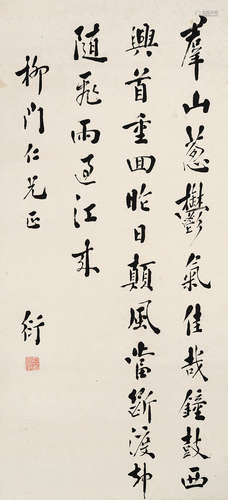 羣山蔥鬱氣佳哉鐘鼓西
興首重回昨日顛風當斷渡却
隨飛雨過江來
柳門仁兄正
衍